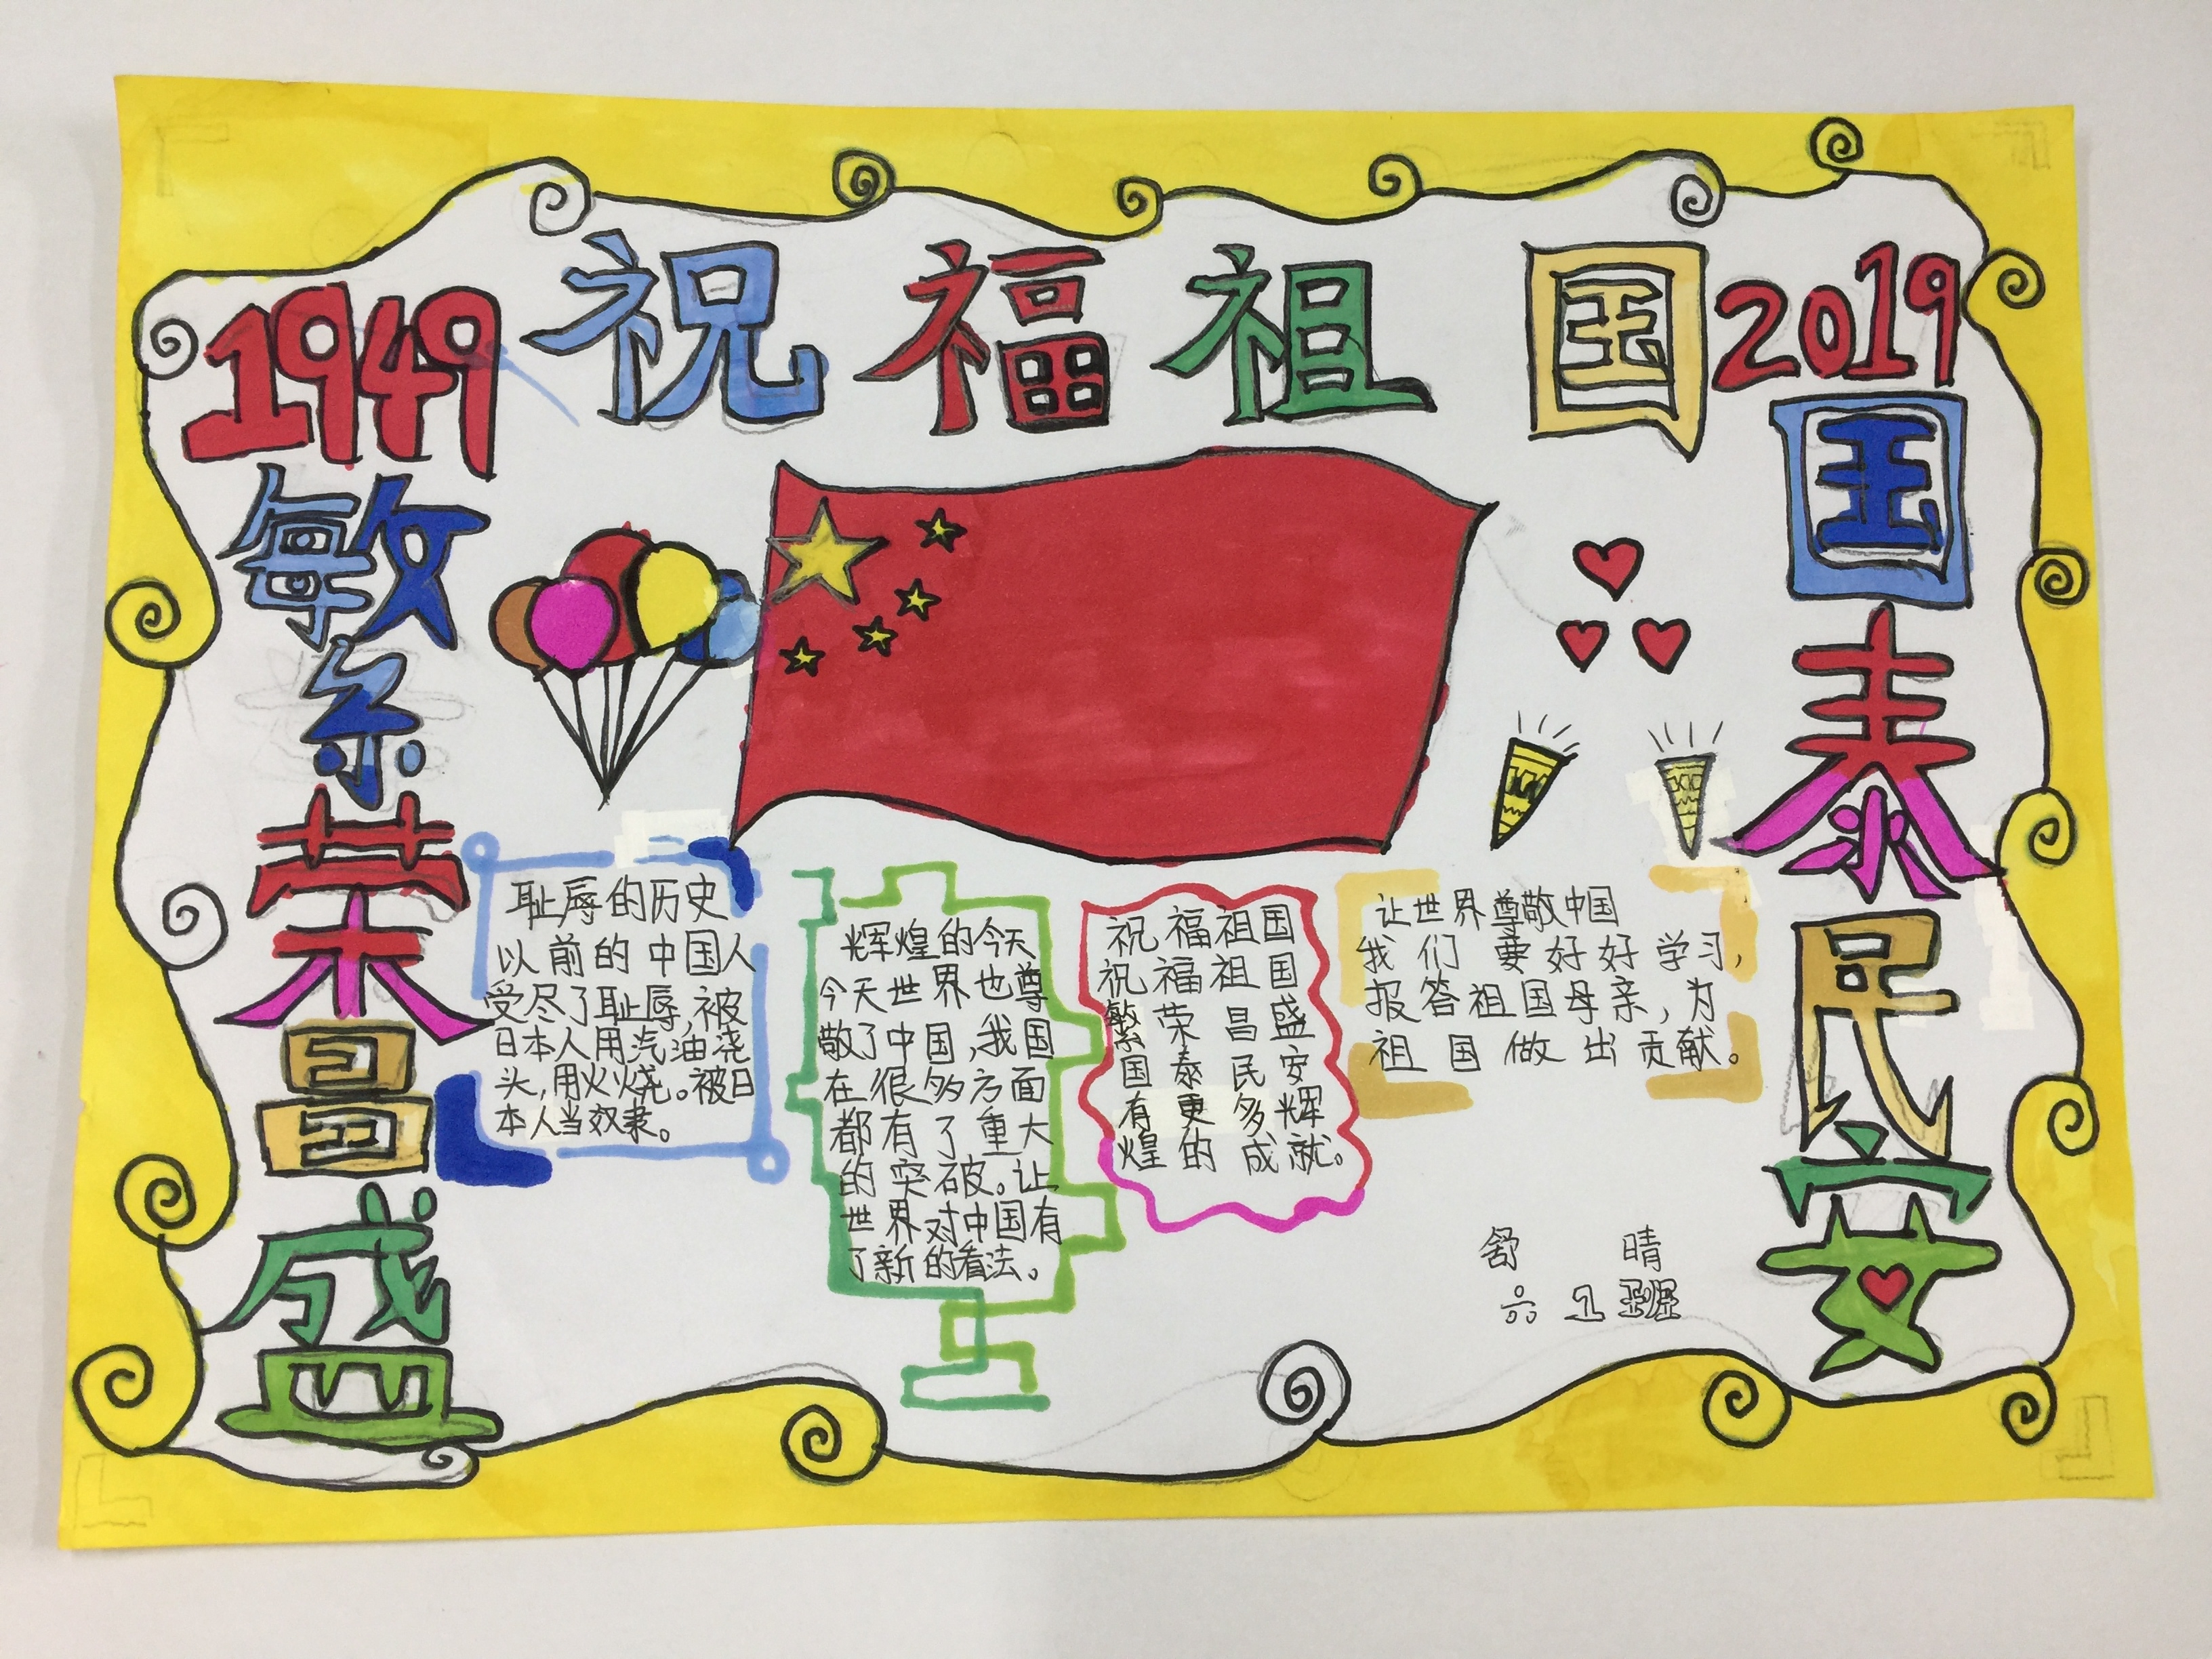 祝福祖国
1949
2019
繁荣昌盛
国泰民安
耻辱的历史
以前的中国人
受尽了耻辱,被
日本人用汽油浇
头,用火烧。被日
本人当奴隶。
辉煌的今天
今天世界也尊
敬了中国,我国
在很多方面
都有了重大
的突破。让
世界对中国有
了新的看法。
祝福祖国
祝福祖国
繁荣昌盛
国泰民安
有更多辉
煌的成就。
让世界尊敬中国
我们要好好学习,
报答祖国母亲,为
祖国做出贡献。
舒晴
六1班